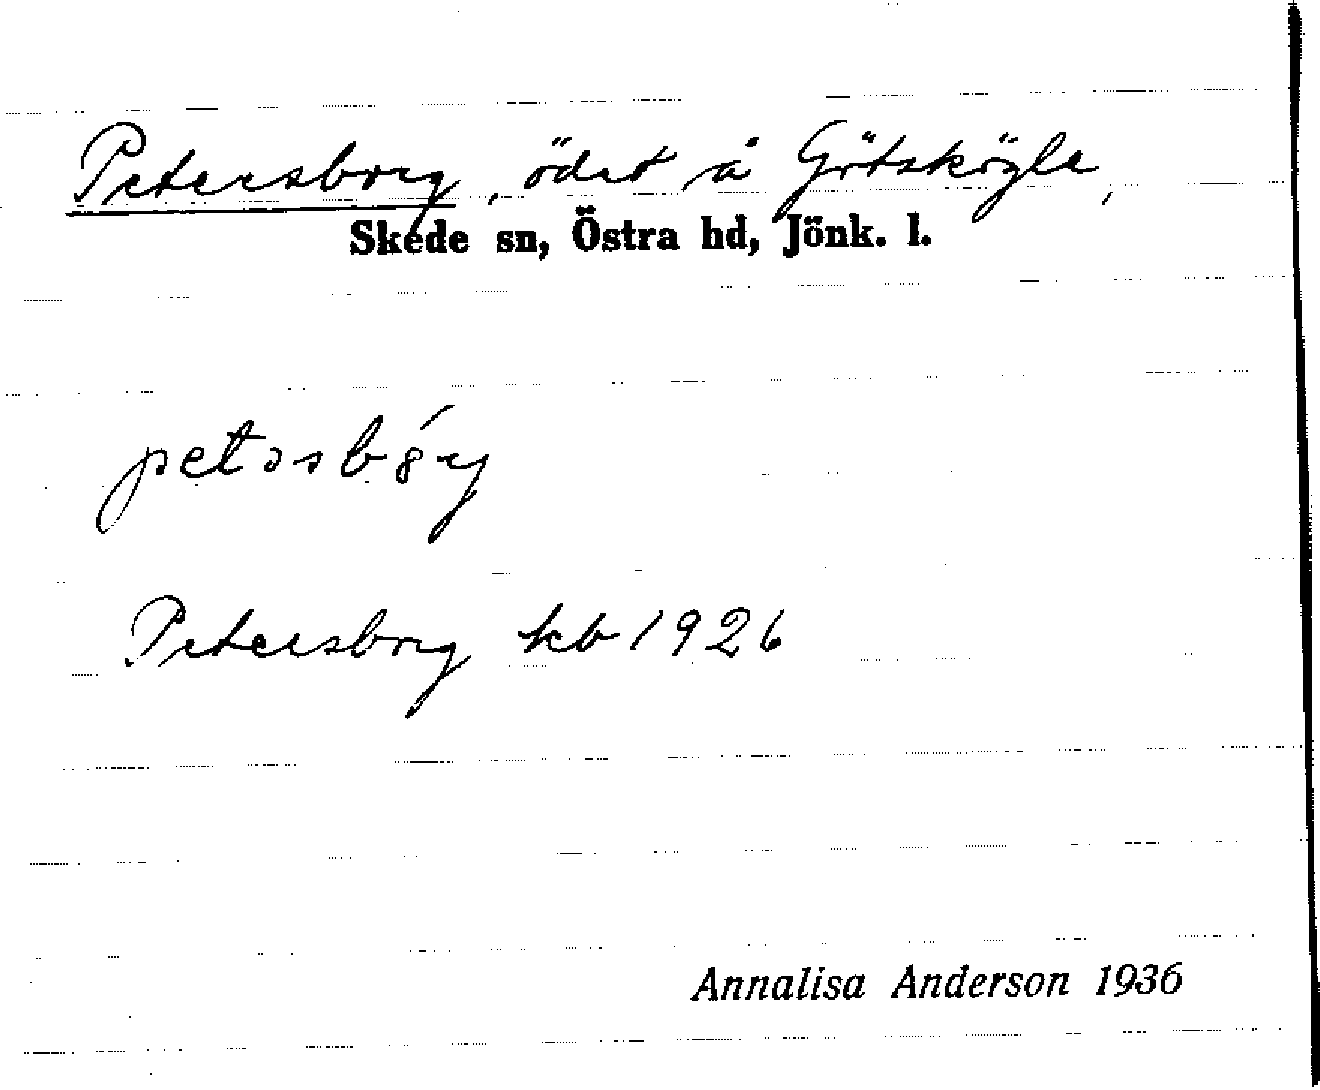 Petersborg, ödet å Götskögle,
Skede sn, Östra hd, Jönk. l.
petəsbǿrj
Petersborg kb 1926
Annalisa Anderson 1936